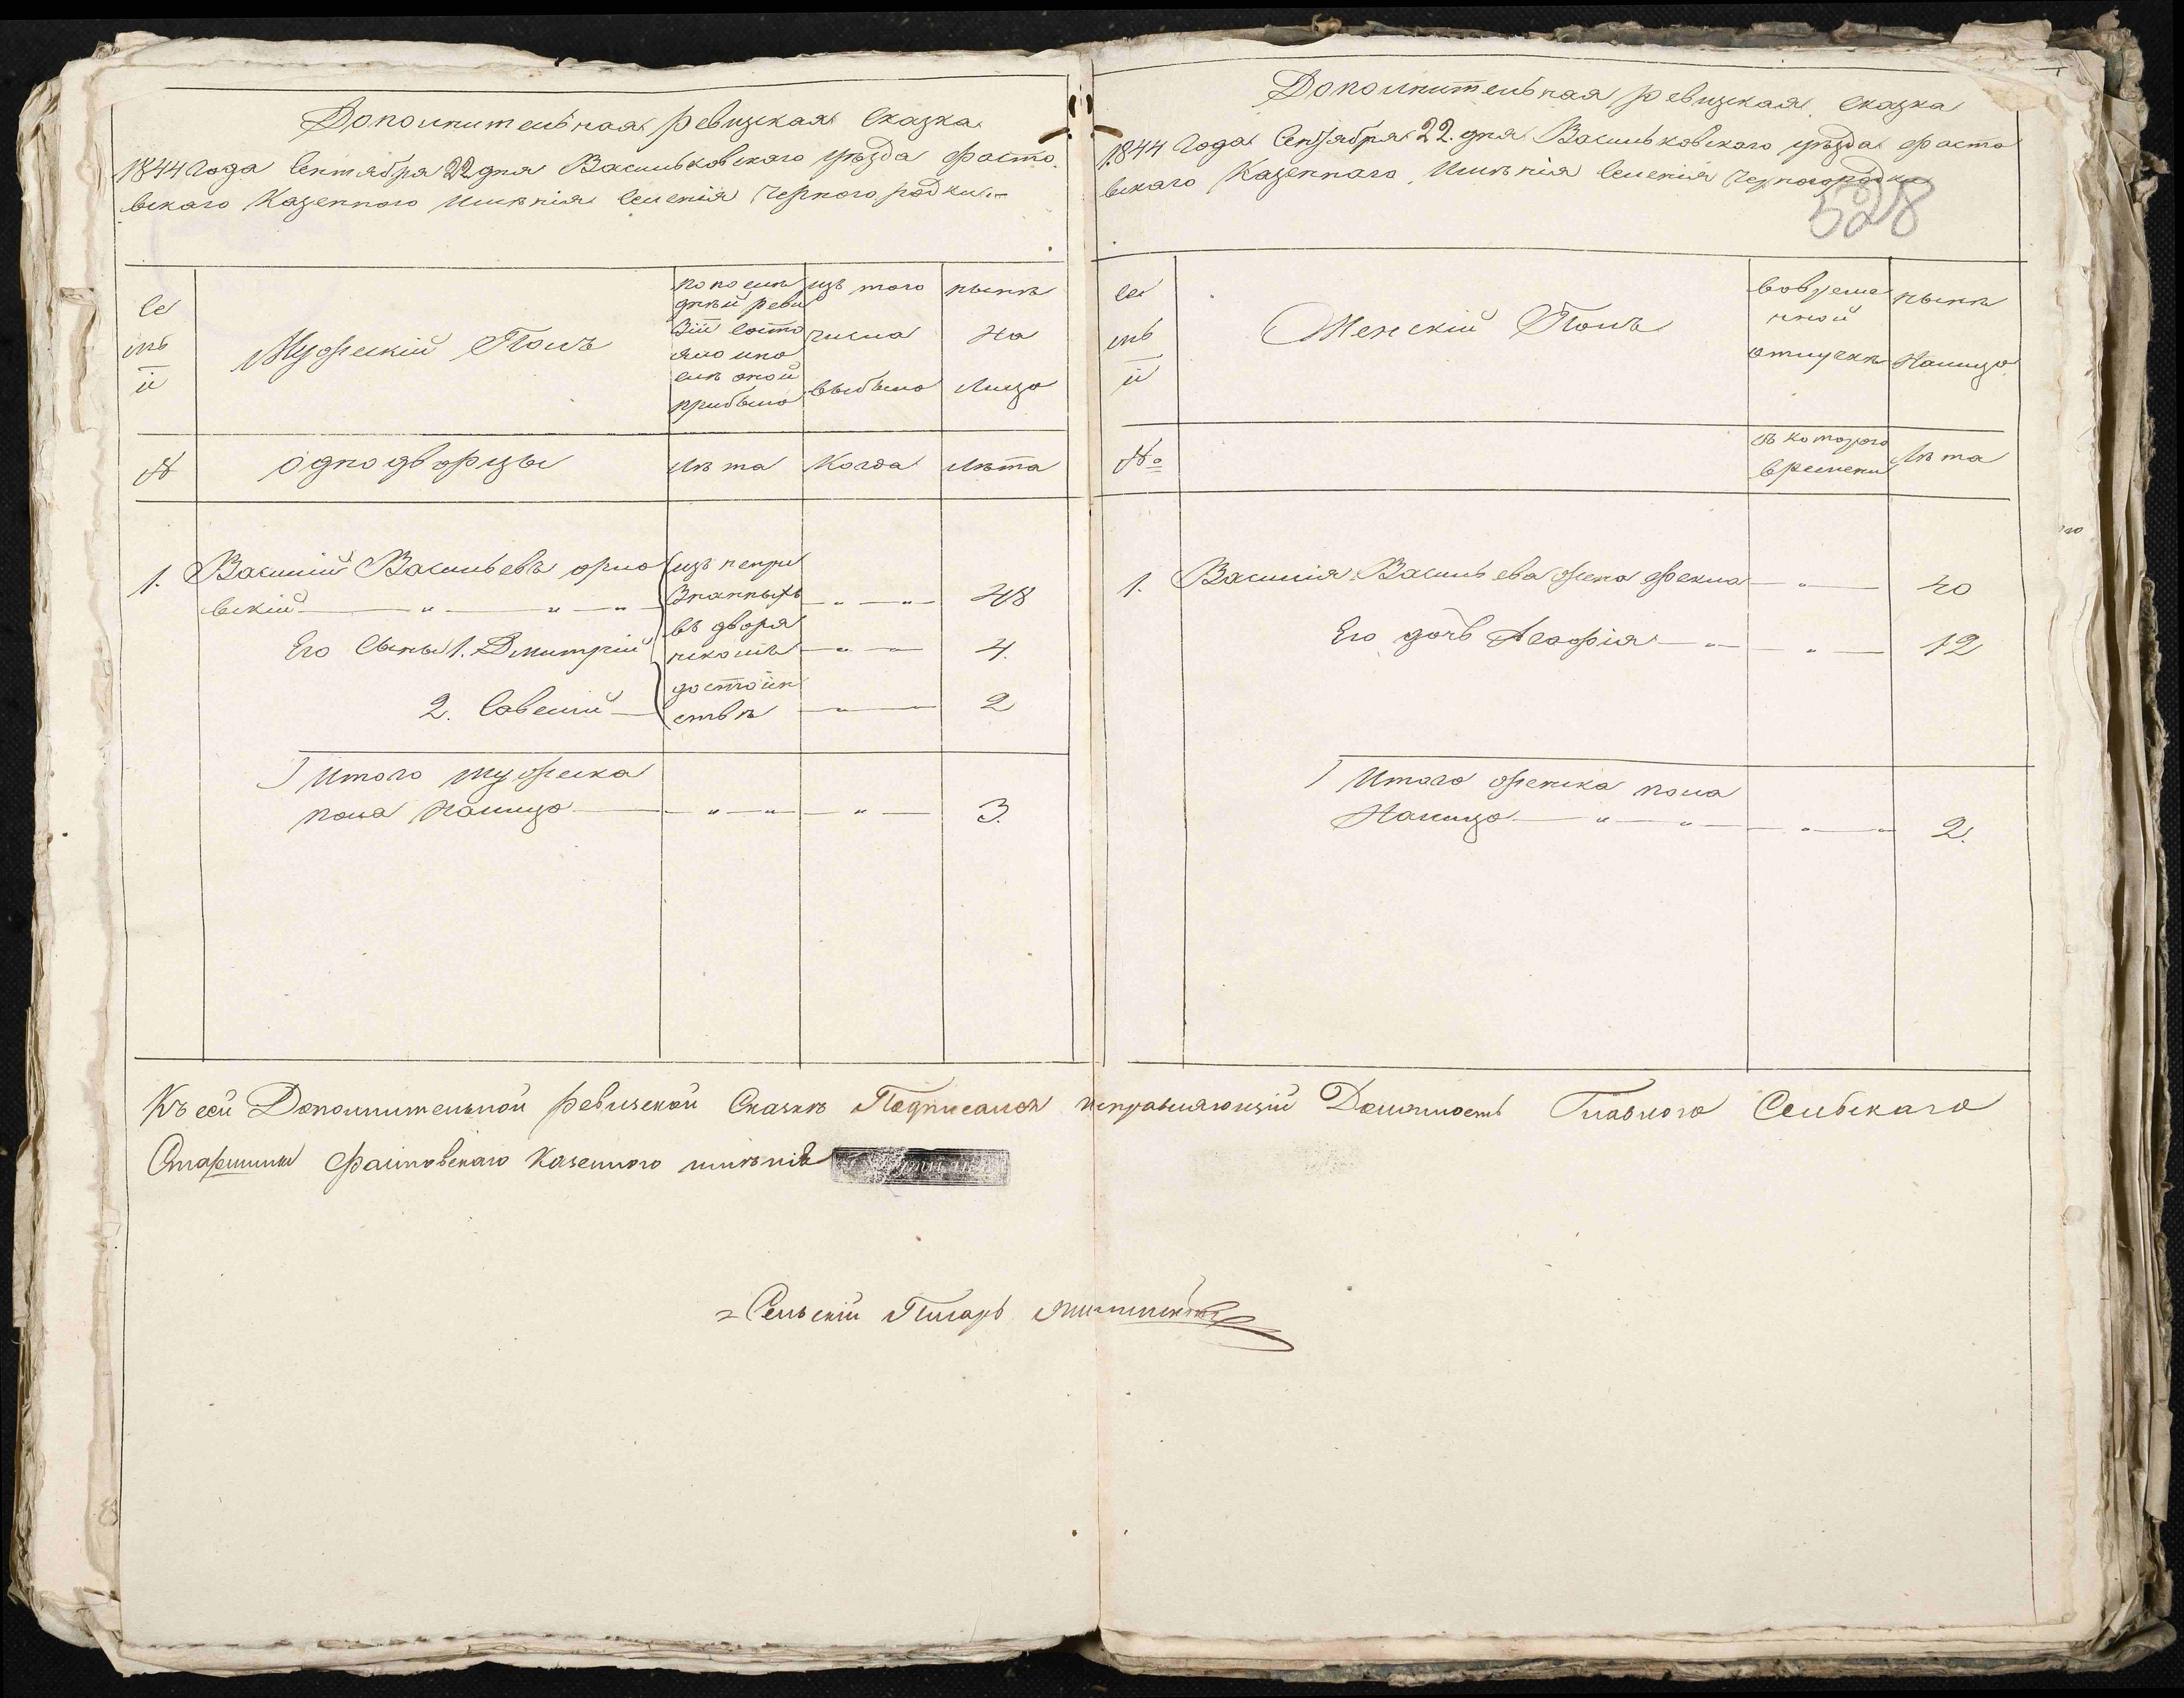 Дополнительная ревизская сказка
1844 года Сентября 22 дня Васильковского уѣзда Фасто
вскаго Казенного Имѣнія Селенія Черногородки.
Се
мь
и
Мужескій Полъ
по после
дней реви
зіи состо
яло и по
слѣ оной
прибыло
изъ того
числа
выбыло
нынѣ
на
лицо
№
однодворцы
лѣта
когда
лѣта
1. Василій Васильевъ Орло
вскій
48
Его сыны 1. Дмитрій
4.
2. Савелий
2
изъ непри
знанныхъ
въ дворя
нскомъ
достоин
ствѣ
Итого мужеска
пола налицо
3.
Дополнительная ревизкая сказка
1844 года Сентября 22. дня Васильковскаго уѣзда Фасто
вскаго Казеннаго Имѣнія Селенія Черногородки
528
се
мь
и
Женскій Полъ
вовреме
нной
отлучкѣ
нынѣ
налицо
№
съ которого
времени
Лѣта
1. Василія Васильева жена Фекла
40
Его дочь Агафія
12
Итого женска пола
Налицо
2.
Къ сей Дополнительной ревизской Сказкѣ Подписался исправляющій Должность Главного Сельскаго
Старшины Фастовскаго Казенного имѣнія
Сельскій Писарь